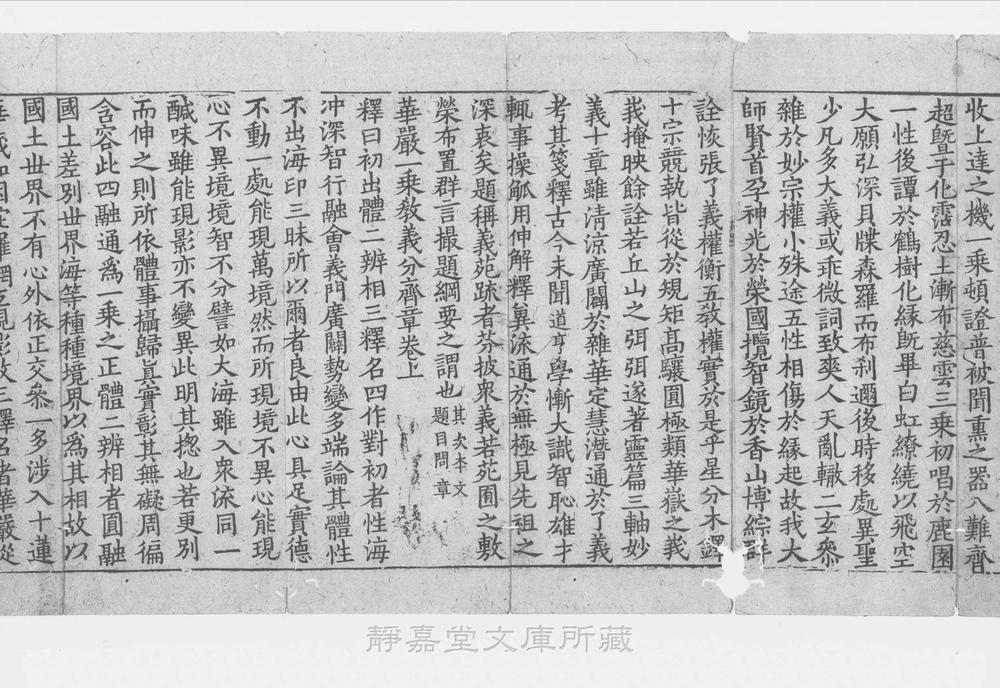 收上達之機一乗頓證普被聞熏之器八難齊
超曁乎化霑忍土漸布慈雲三乗初唱於鹿園
一性後譚於鶴樹化緣旣畢白虹繚繞以飛空
大願弘深貝牒森羅而布刹邇後時移處異聖
少凡多大義或乖微詞致爽人天亂轍二玄叅
雜於妙宗權小殊途五性相傷於緣起故我大
師賢首孕神光於榮國攬智鏡於香山博綜群
詮恢張了義權衡五敎權實於是乎星分木鐸
十宗競執皆從於規矩髙驤圓極類華嶽之峩
峩掩映餘詮若丘山之弭弭遂著靈篇三軸妙
義十章雖清涼廣闢於雜華定慧潛通於了義
考其箋釋古今未聞道亨學慚大識智恥雄才
輒事操觚用伸解釋冀流通於無極見先祖之
深衷矣題稱義苑䟽者芬披衆義若苑囿之敷
榮布置群言撮題綱要之謂也其次本文
題目問章
華嚴一乗敎義分齊章卷上
釋曰初出體二辨相三釋名四作對初者性海
冲深智行融會義門廣闢勢變多端論其體性
不出海印三昧所以爾者良由此心具足實德
不動一處能現萬境然而所現境不異心能現
心不異境境智不分譬如大海雖入衆流同一
醎味雖能現影亦不變異此明其揔也若更別
而伸之則所依體事攝歸眞實彰其無礙周徧
含容此四融通爲一乗之正體二辨相者圓融
國土差別世界海等種種境界以爲其相故以
國土世界不有心外依正交叅一多涉入十蓮
靜嘉堂文庫所藏